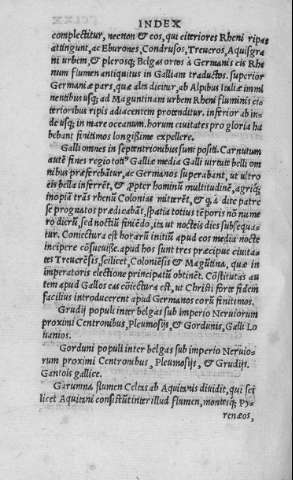 INDEX
complectitur, necnon & eos, qui citeriores Rheni ripas
attingunt, ac Eburones, Condrusos, Treueros, Aquisgra
ni urbem, & plerosq; Belgas ortos à Germanis cis Rhe
num flumen antiquitus in Galliam traductos. superior
Germaniæ pars, quæ alta dicitur, ab Alpibus Italiæ immi
nentibus usq; ad Maguntinam urbem Rheni fluminis ci
terioribus ripis adiacentem protenditur. inferior ab in
de usq; in mare oceanum. horum ciuitates pro gloria ha
bebant finitimos longissime expellere.
Galli omnes in septentrionibus sunt positi. Carnutum
autē fines regio totī Galliæ media Galli uirtute belli om
nibus præferebātur, ac Germanos superabant, ut ultro
eis bella inferrēt, & ꝓpter hominū multitudinē, agriq;
inopiā trās rhenū Colonias mitterēt, & q a dite patre
se prognatos prædicabāt, spatia totius tēporis nō nume
ro dierū, sed noctiū finiēdo, ita ut noctēis dies subsequa
tur. Coniectura est horarū initiū apud eos media nocte
incipere cōsueuisse. apud hos sunt tres præcipue ciuita
tes Treuerēsis, scilicet, Coloniēsis & Magūtina, quæ in
imperatoris electione principatū obtinēt. Cōstitutas au
tem apud Gallos eas cōiectura est, ut Christi forte fidem
facilius introducerent apud Germanos corū finitimos.
Grudij populi inter belgas sub imperio Neruiorum
proximi Centronibus, Pleumosijs, & Gordunis, Galli Lo
uanios.
Gorduni populi inter belgas sub imperio Neruio-
rum proximi Centronibus, Pleumosijs, & Grudijs.
Gantois gallice.
Garumna flumen Celtas ab Aquitanis diuidit, qui sci
licet Aquitani consistūt inter illud flumen, montesq; Py-
renæos,